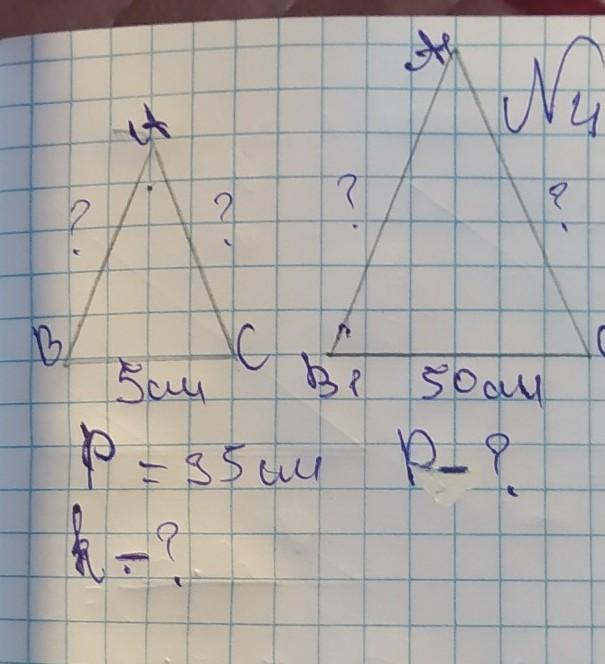 A A1 N4
? ? ? ?
B C B1 C
5см 50см
P = 35см P - ?
k - ?